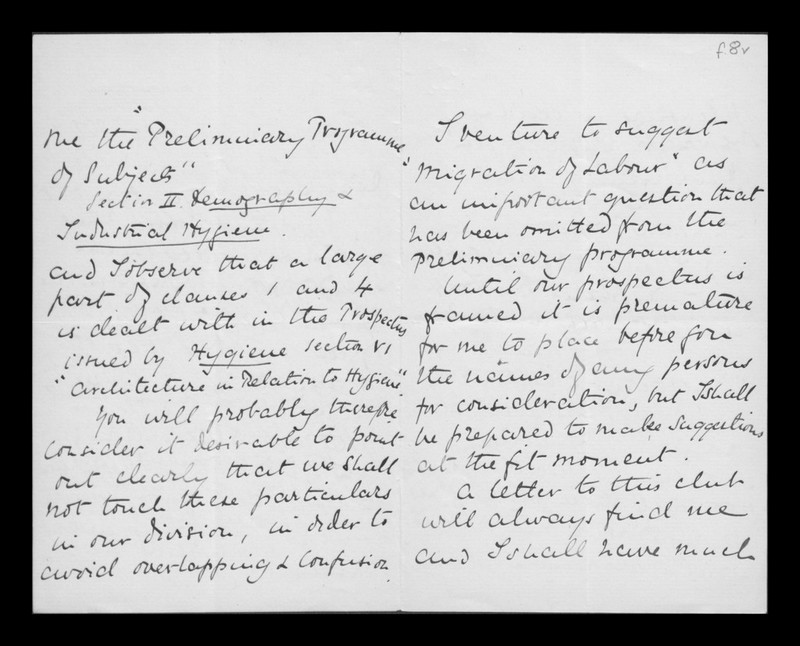 f8v
me the "Preliminary Programme
of Subjects"
Section II Demography &
Industrial Hygiene.
and I observe that a large
part of clauses 1 and 4
is dealt with in the Prospectus
issued by Hygiene section VI
"Architecture in Relation to Hygiene".
You will probably therefore
consider it desirable to point
out clearly that we shall
not touch these particulars
in our division, in order to
avoid overlapping & confusion.
I venture to suggest
"Migration of Labour" as
an important question that
has been omitted from the
Preliminary programme.
Until our prospectus is
framed it is premature
for me to place before you
the names of any persons
for consideration, but I shall
be prepared to make suggestions
at the fit moment.
A letter to this club
will always find me
and I shall have much